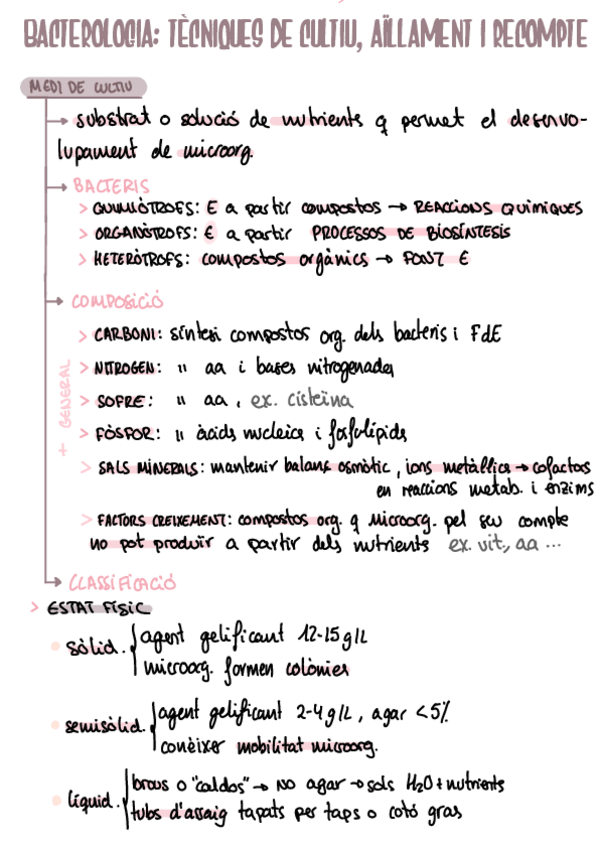 BACTEROLOGIA: TÈCNIQUES DE CULTIU, AÏLLAMENT I RECOMPTE
MEDI DE CULTIU
→ substrat o solució de nutrients q permet el desenvo-
lupament de microorg.
→ BACTERIS
> QUIMIÒTROFS: E a partir compostos → REACCIONS QUÍMIQUES
> ORGANÒTROFS: E a partir PROCESSOS DE BIOSÍNTESIS
> HETERÒTROFS: compostos orgànics → FONT E
→ COMPOSICIÓ
+ GENERAL
> CARBONI: síntesi compostos org. dels bacteris i FdE
> NITROGEN: " aa i bases nitrogenades
> SOFRE: " aa, ex. cisteïna
> FÒSFOR: " àcids nucleics i fosfolípids
> SALS MINERALS: mantenir balanç osmòtic, ions metàl·lics → cofactors
en reaccions metab. i enzims
> FACTORS CREIXEMENT: compostos org. q microorg. pel seu compte
no pot produir a partir dels nutrients ex. vit, aa ...
→ CLASSIFICACIÓ
> ESTAT FÍSIC
• sòlid. agent gelificant 12-15 g/L
microorg. formen colònies
• semisòlid. agent gelificant 2-4 g/L, agar <5%
conèixer mobilitat microorg.
• líquid. brous o "caldos" → NO agar → sols H₂O + nutrients
tubs d'assaig tapats per taps o cotó gras